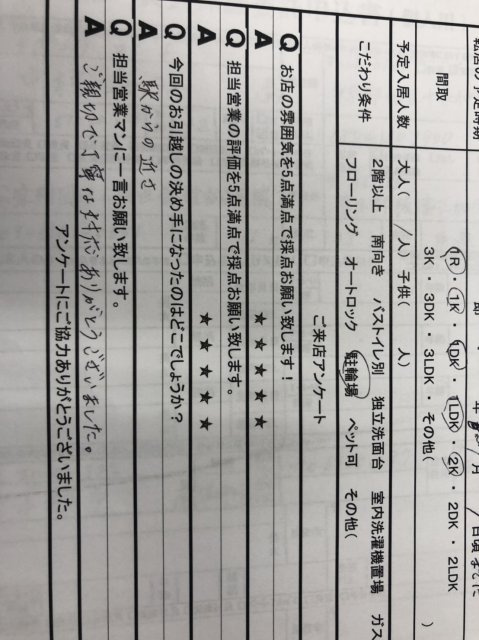 間取 1R・1K・1DK・1LDK・2K・2DK・2LDK
3K・3DK・3LDK・その他( )
予定入居人数 大人(1人)子供( 人)
こだわり条件 2階以上 南向き バストイレ別 独立洗面台 室内洗濯機置場 ガス
フローリング オートロック 駐輪場 ペット可 その他(
ご来店アンケート
Q お店の雰囲気を5点満点で採点お願い致します!
A ★ ★ ★ ★ ★
Q 担当営業の評価を5点満点で採点お願い致します。
A ★ ★ ★ ★ ★
Q 今回のお引越しの決め手になったのはどこでしょうか?
A 駅からの近さ
Q 担当営業マンに一言お願い致します。
A ご親切で丁寧な対応ありがとうございました。
アンケートにご協力ありがとうございました。